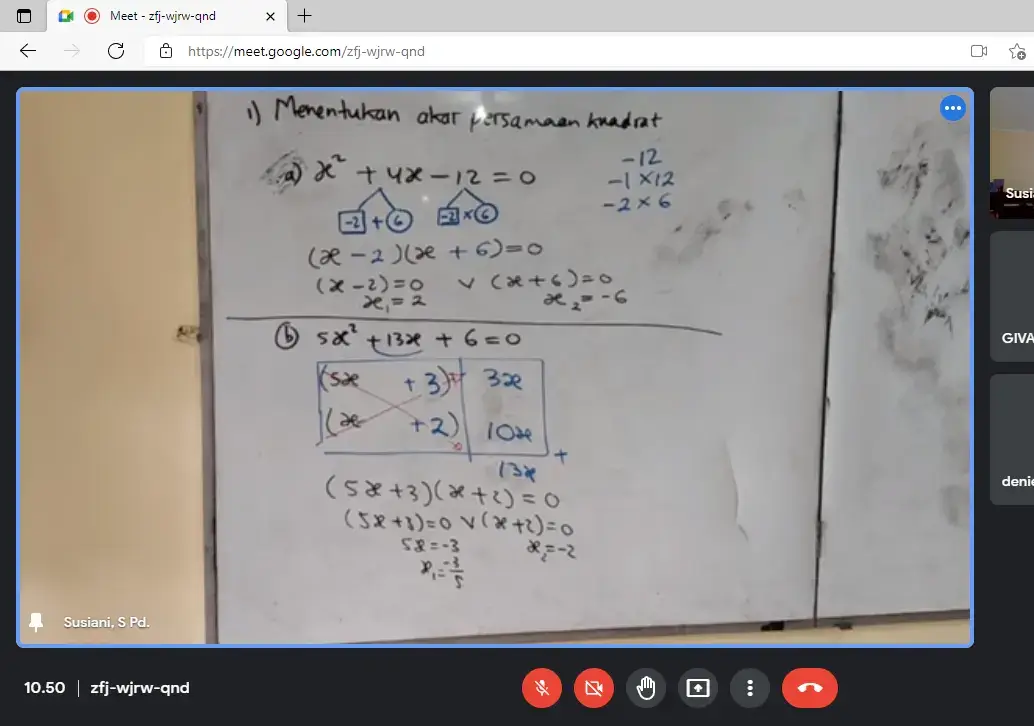 Meet - zfj-wjrw-qnd
https://meet.google.com/zfj-wjrw-qnd
1) Menentukan akar persamaan kuadrat
a) x² + 4x - 12 = 0
-2 + 6 -2 × 6
-12
-1 × 12
-2 × 6
(x - 2)(x + 6) = 0
(x - 2) = 0 ∨ (x + 6) = 0
x₁ = 2 x₂ = -6
b) 5x² + 13x + 6 = 0
(5x + 3) 3x
(x + 2) 10x
13x +
(5x + 3)(x + 2) = 0
(5x + 3) = 0 ∨ (x + 2) = 0
5x = -3 x₂ = -2
x₁ = -3/5
Susiani, S Pd.
Susi
GIVA
denie
10.50 | zfj-wjrw-qnd